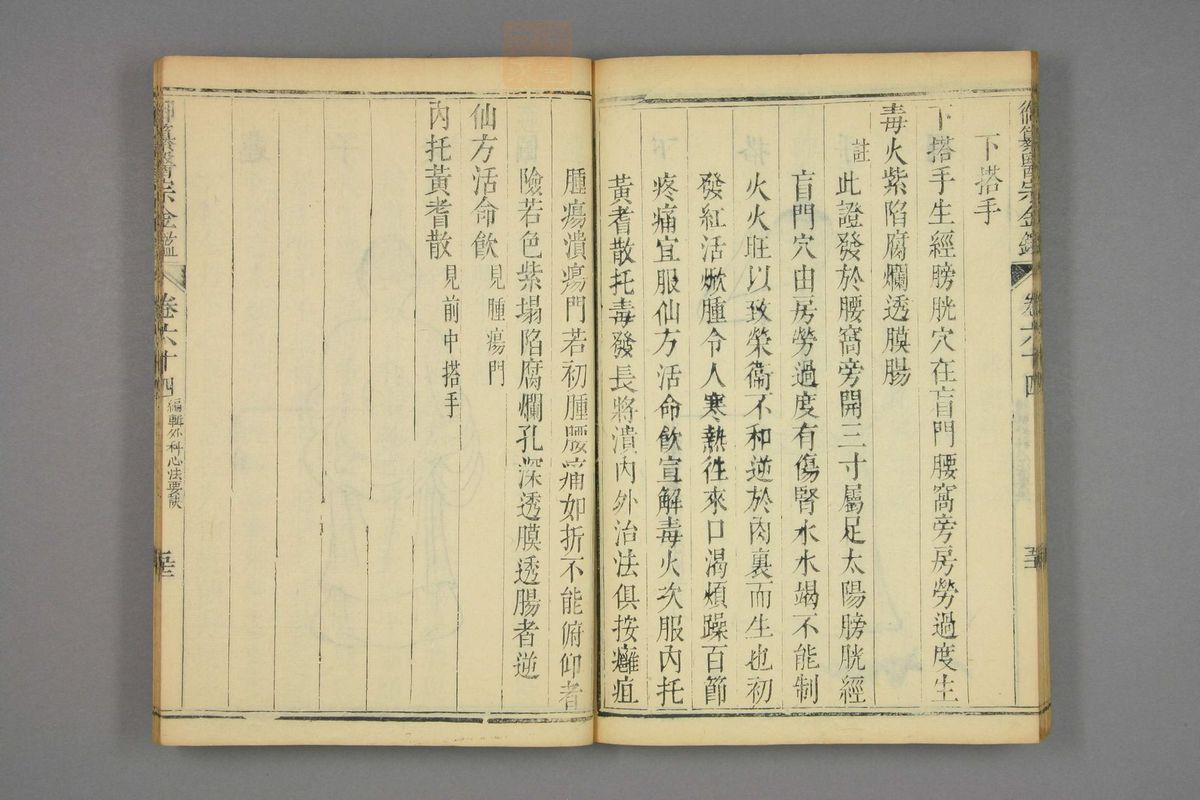 下搭手
下搭手生經膀胱穴在肓門腰窩旁房勞過度生
毒火紫陷腐爛透膜腸
註
此證發於腰窩旁開三寸屬足太陽膀胱經
肓門穴由房勞過度有傷腎水水竭不能制
火火旺以致榮衞不和逆於肉裏而生也初
發紅活焮腫令人寒熱往來口渴煩躁百節
疼痛宜服仙方活命飲宣解毒火次服內托
黃耆散托毒發長將潰內外治法俱按癰疽
御纂醫宗金鑑
卷六十四
腫瘍潰瘍門若初腫腰痛如折不能俯仰者
險若色紫塌陷腐爛孔深透膜透腸者逆
仙方活命飲見腫瘍門
內托黃耆散見前中搭手
御纂醫宗金鑑
卷六十四
編輯外科心法要訣